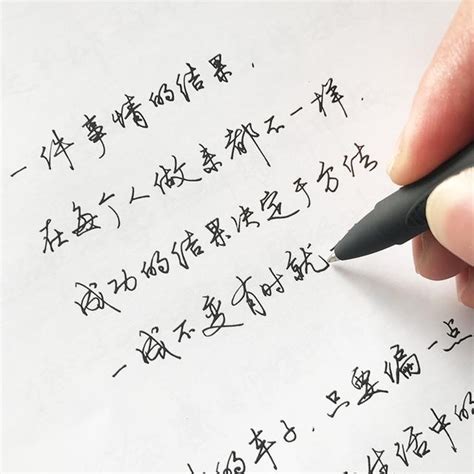 一件事情的结果.
在每个人做来都不一样.
成功的结果决定于方法
一成不变有时就
的车子.只要编一点
生活中的